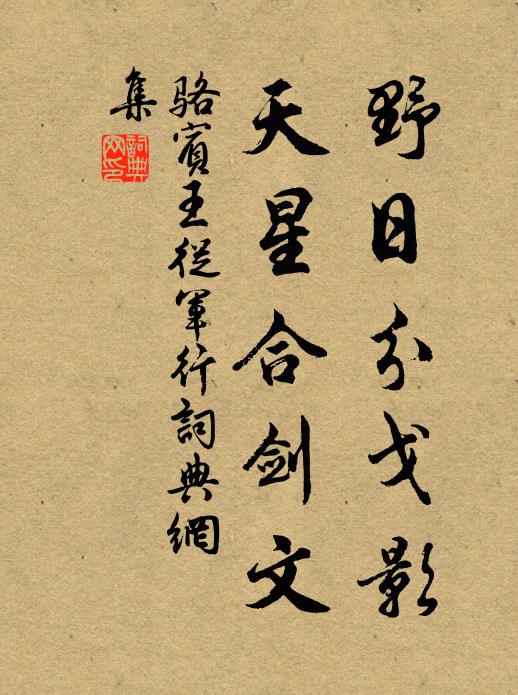 野日分戈影
天星合剑文
骆賓王從軍行詞典網
集
詞典网印